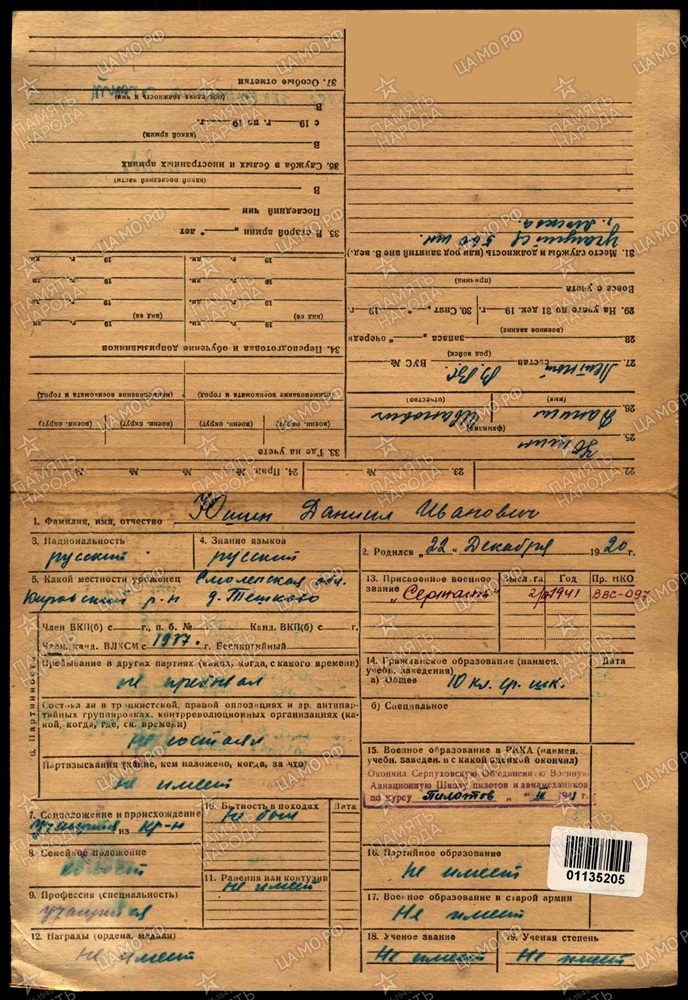 37. Особые отметки
(последняя должность и чин)
В
с 19 г. по 19 г.
(какой армии)
В
36. Служба в белых и иностранных армиях
(какой последней части)
В
Последний чин
35. В старой армии „ “ лет
19 г. 19 г.
19 г. 19 г.
(вид ее) (вид ее)
19 г. 19 г.
34. Переподготовка и обучение допризывников
(наименование военкомата и город) (наименование военкомата и город)
(военн. округ) (военн. округ) (военн. округ) (военн. округ)
33. Где на учете
г. Москва.
учащийся ср. 560 шк.
31. Место службы и должность или род занятий (вне В. вед.)
(причина)
Вовсе с учета
29. На учете по 31 дек. 19 г. 30. Снят „ “ 19 г.
(военное звание)
28. запаса очереди
(род войск)
27. Состав Летный ВУС № ВВС
(имя) (отчество)
26. Даниил Иванович
(фамилия)
25. Юшин
22. № 23. № 24. Прик. № №
1. Фамилия, имя, отчество Юшин Даниил Иванович
3. Национальность русский
4. Знание языков русский
2. Родился „22“ Декабря 1920 г.
5. Какой местности уроженец Смоленская обл.
Кировский р-н д. Тешково
13. Присвоенное военное звание „Сержант“
Высл. г-а Год 1941 Пр. НКО ВВС-097
Член ВКП(б) с г., п. б. № Канд. ВКП(б) с г.
Член, канд. ВЛКСМ с 1937. г. Беспартийный
6. Партийность
Пребывание в других партиях (каких, когда, с какого времени)
не пребывал
Состоял ли в троцкистской, правой оппозиции и др. антипартийных группировках, контрреволюционных организациях (какой, когда, где, ск. времени)
Не состоял
Партвзыскания (какие, кем наложено, когда, за что)
Не имеет
14. Гражданское образование (наимен. учебн. заведения) Дата
а) Общее 10 кл. ср. шк.
б) Специальное
15. Военное образование в РККА (наимен. учебн. заведен. и с какой оценкой окончил)
Окончил Серпуховскую Объединенную Военную
Авиационную Школу пилотов и авиамехаников
по курсу Пилотов
7. Соцположение и происхождение
учащийся из кр-н
10. Бытность в походах Дата
Не был
8. Семейное положение
холост
11. Ранения или контузии
Не имеет
9. Профессия (специальность)
учащийся
12. Награды (ордена, медали)
Не имеет
16. Партийное образование
Не имеет
17. Военное образование в старой армии
Не имеет
18. Ученое звание
Не имеет
19. Ученая степень
Не имеет
01135205
ПАМЯТЬ НАРОДА
ЦАМО.РФ